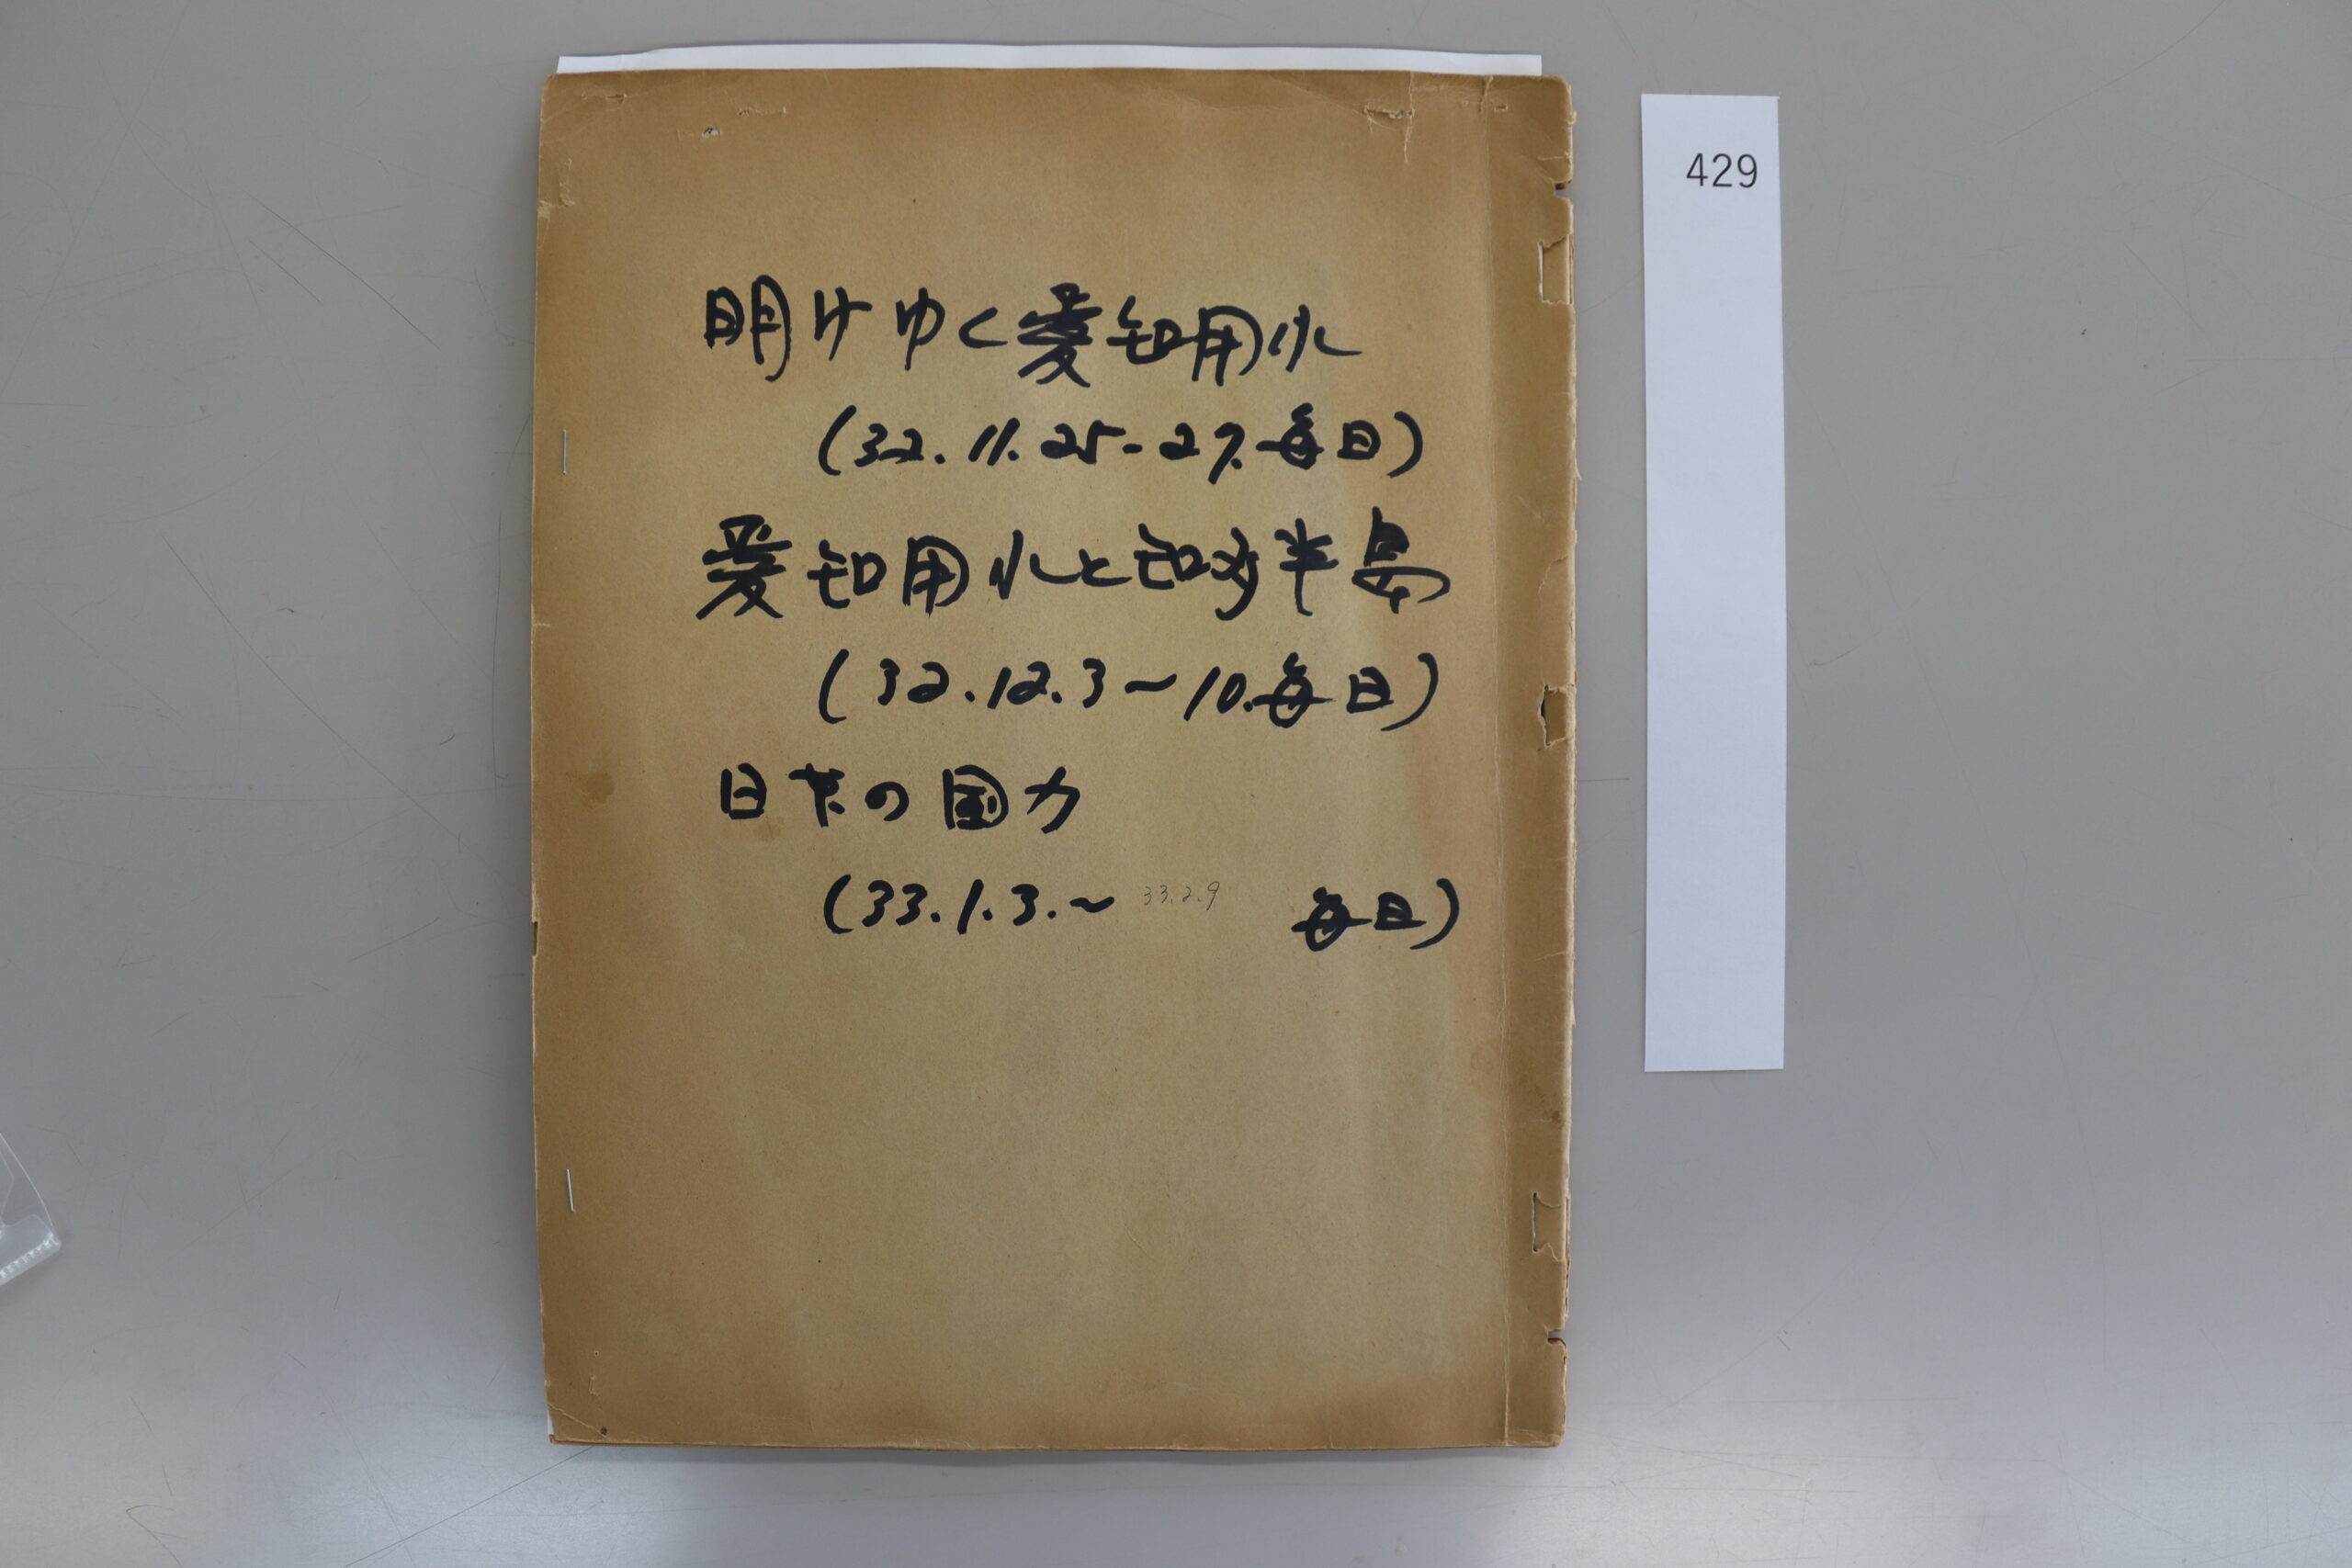 明けゆく愛知用水
(32.11.25-27.毎日)
愛知用水と知多半島
(32.12.3~10.毎日)
日本の国力
(33.1.3.~ 33.2.9 毎日)
429